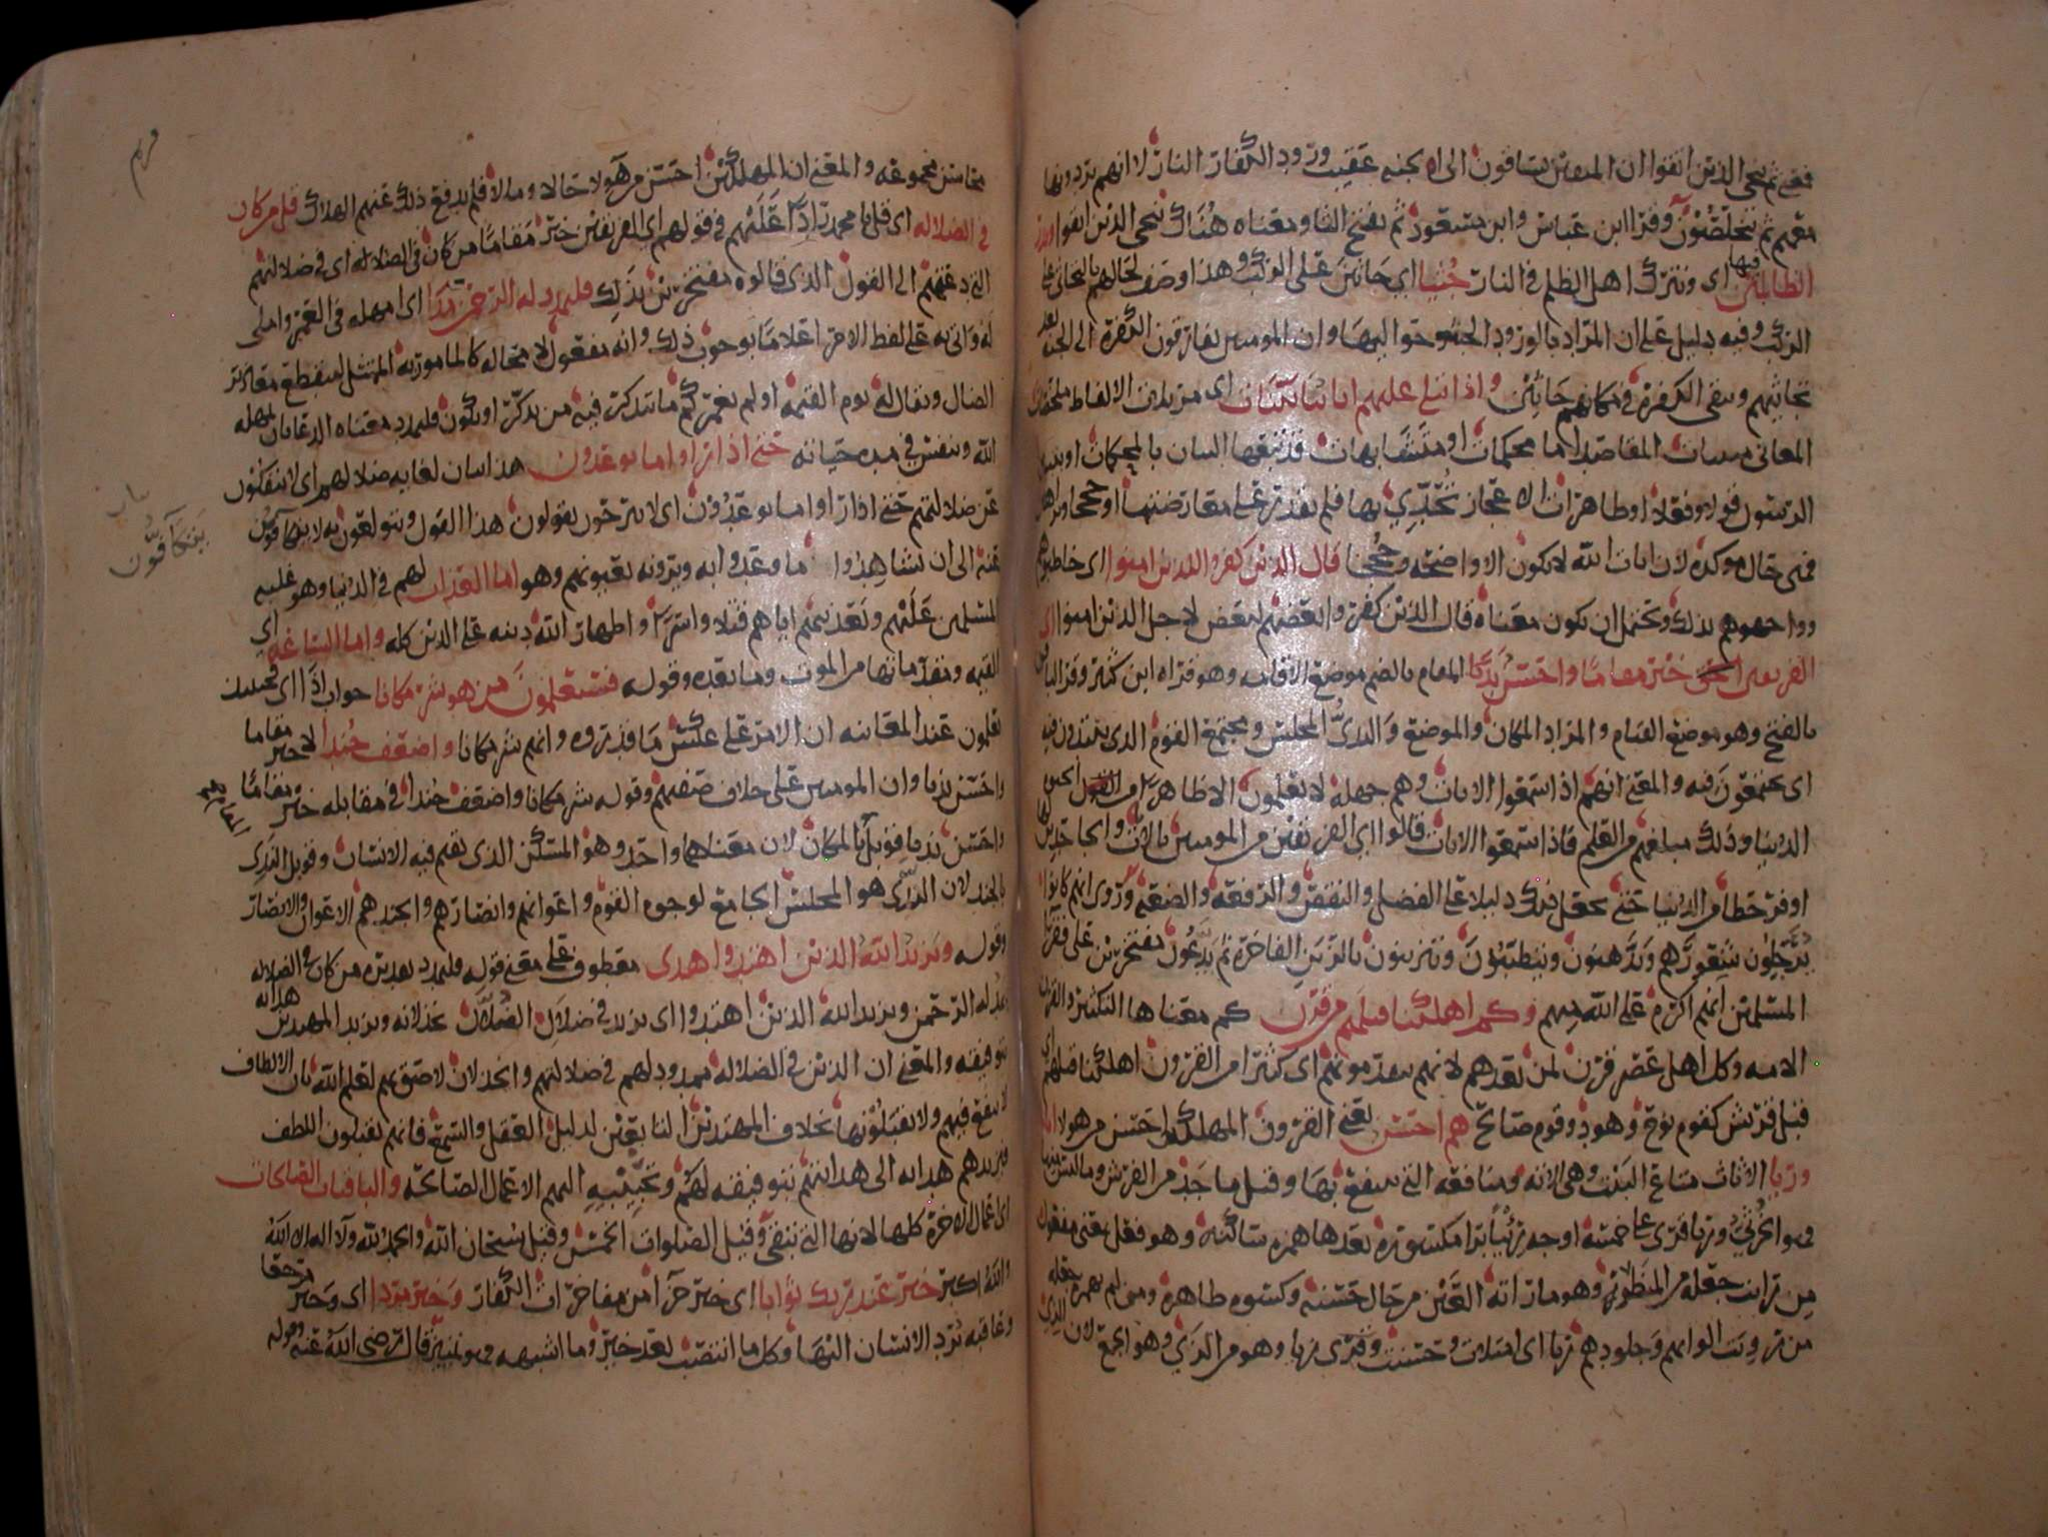 فمعنى ثم ننجي الذين اتقوا ان المتقين يساقون الى الجنه عقيب ورود الكفار النار لا انهم يردونها
معهم ثم يتخلصون وقرا ابن عباس وابن مسعود ثم بفتح الثا ومعناه هناك ننجي الذين اتقوا ونذر
الظالمين فيها اى ونترك اهل الظلم في النار جثيا اي جاثين على الركب وهذا وصف لحالهم
الركب وفيه دليل على ان المراد بالورود الجثو حواليها وان المومنين يفارقون الكفره الى الجنه بعد
تجاثيهم وتبقى الكفره في مكانهم جاثين واذا تتلى عليهم اياتنا بينات اى مرتلات الالفاظ ملخصات
المعانى مبينات المقاصد اما محكمات او متشابهات قد تبعها البيان بالمحكمات او بتبيين
الرسول قولا وفعلا او ظاهرات الاعجاز تحدي بها فلم يقدر على معارضتها او حججا وبراهين
فهى حال موكده لان ايات الله لا تكون الا واضحه وحججا قال الذين كفروا للذين امنوا اى خاطبوهم
وواجهوهم بذلك ويحتمل ان يكون معناه قال الذين كفروا بعضهم لبعض لاجل الذين امنوا اى
الفريقين خير مقاما واحسن نديا المقام بالضم موضع الاقامه وهو قراه ابن كثير وقرا الباقون
بالفتح وهو موضع القيام والمراد المكان والموضع والندى المجلس ومجتمع القوم الذى ينتدون فيه
اى يجتمعون فيه والمعنى انهم اذا سمعوا الايات وهم جهله لا يعلمون الا ظاهرا من
الدنيا وذلك مبلغهم من العلم فاذا سمعوا الايات قالوا اى الفريقين من المومنين بالايات والجاحدين لها
اوفر حظا من الدنيا حتى يجعل ذلك دليلا على الفضل والنقص والرفعه والضعه وروى انهم كانوا
يرجلون شعورهم ويدهنون ويتطيبون ويتزينون بالزين الفاخره ثم يدعون مفتخرين على فقرا
المسلمين انهم اكرم على الله منهم وكم اهلكنا قبلهم من قرن كم معناها التكثير والقرن
الامه وكل اهل عصر قرن لمن بعدهم لانهم يتقدمونهم اى كثيرا من القرون اهلكنا قبلهم اى
قبل قريش كقوم نوح وهود وقوم صالح هم احسن يعني القرون المهلكه احسن من هولا اثاثا
وريا الاثاث متاع البيت وهى الانيه ومنافعه التي ينتفع بها وقيل ما جد من الفرش وما لبس منها
فهو الخرثي وريا قرى على خمسه اوجه رئيا برا مكسوره بعدها همزه ساكنه وهو فعل بمعنى مفعول
من رايت جعله من المنظور وهو ما راته العين من حال حسنه وكسوه ظاهره ومن لم يهمزه جعله
من رويت الوانهم وجلودهم ريا اى امتلات وحسنت وقرى زيا وهو من الزي وهو الجمع لان الزي
محاسن مجموعه والمعنى ان المهلكين احسن من هولا حالا ومالا فلم يدفع ذلك عنهم الهلاك قل من كان
في الضلاله اى قل يا محمد رادا عليهم في قولهم اى الفريقين خير مقاما من كان في الضلاله اى في ضلالتهم
التى دعتهم الى القول الذى قالوه مفتخرين بذلك فليمدد له الرحمن مدا اى امهله في العمر واملى
له واتى به على لفظ الامر اعلاما بوجوب ذلك وانه مفعول لا محاله كالمامور به الممتثل لينقطع معاذير
الضال ويقال له يوم القيمه اولم نعمركم ما يتذكر فيه من تذكر او يكون فليمدد معناه الدعا بان يمهله
الله وينفس في مده حياته حتى اذا راوا ما يوعدون هذا بيان لغايه ضلالهم اى لا ينفكون
عن ضلالتهم حتى اذا راوا ما يوعدون اى لا يبرحون يقولون هذا القول ويتولعون به لا يتكافون
عنه الى ان يشاهدوا ما وعدوا به ويرونه بعيونهم وهو اما العذاب لهم في الدنيا وهو غلبه
المسلمين عليهم وتعذيبهم اياهم قتلا واسرا واظهار الله دينه على الدين كله واما الساعه اي
القيمه ومقدماتها من الموت وما بعده وقوله فسيعلمون من هو شر مكانا جواب اذا اى فحينئذ
يعلمون عند المعاينه ان الامر على عكس ما قدروه وانهم شر مكانا واضعف جندا لا خير مقاما
واحسن نديا وان المومنين على خلاف صفتهم وقوله شر مكانا واضعف جندا في مقابله خير مقاما
واحسن نديا قوبل المكان لان معناهما واحد وهو المسكن الذى يقيم فيه الانسان وقوبل الندى
بالجند لان الندى هو المجلس الجامع لوجوه القوم واعوانهم وانصارهم والجند هم الاعوان والانصار
وقوله ويزيد الله الذين اهتدوا هدى معطوف على معنى قوله فليمدد تقديره من كان في الضلاله
يمد له الرحمن ويزيد الله الذين اهتدوا اى يزيد في ضلال الضلال بخذلانه ويزيد المهتدين هدايه
بتوفيقه والمعنى ان الذين في الضلاله ممدود لهم في ضلالتهم والخذلان لاصق بهم لعلم الله بان الالطاف
لا تنفع فيهم ولا يقبلونها بخلاف المهتدين التابعين لدليل العقل والسمع فانهم يقبلون اللطف
فيزيدهم هدايه الى هدايتهم بتوفيقه لهم وتحبيبه اليهم الاعمال الصالحه والباقيات الصالحات
اى اعمال الاخره كلها لانها التي تبقى وقيل الصلوات الخمس وقيل سبحان الله والحمد لله ولا اله الا الله
والله اكبر خير عند ربك ثوابا اى خير جزا من مفاخرات الكفار وخير مردا اى وخير مرجعا
وعاقبه يرد الانسان اليها وكل ما انتصب بعد خير وما اشبهه فهو تمييز قال رضي الله عنه وقوله
مريم
بيان
يتكافون